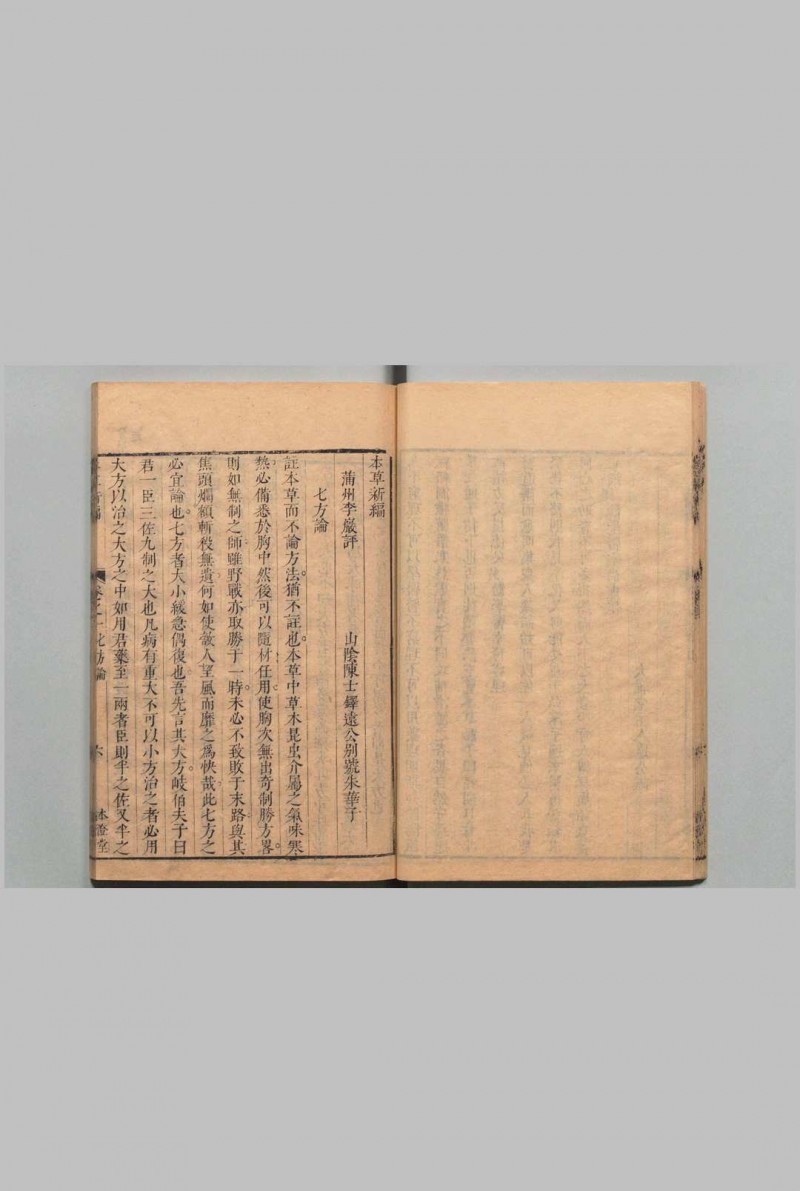 本草新編
蒲州李巖評 山陰陳士鐸遠公別號朱華子
七方論
註本草而不論方法。猶不註也。本草中草木昆虫介屬之氣味寒
熱必備悉於胸中然後可以隨材任用。使胸次無出奇制勝方畧。
則如無制之師。雖野戰亦取勝于一時。未必不致敗于末路。與其
焦頭爛額斬殺無遺。何如使敵人望風而靡之爲快哉此七方之
必宜論也。七方者大小緩急奇偶復也吾先言其大方。岐伯夫子曰
君一臣三佐九制之大也凡病有重大不可以小方治之者必用
大方以治之大方之中如用君藥至一兩者臣則半之佐又半之
卷之一 七方論 六 本澄堂